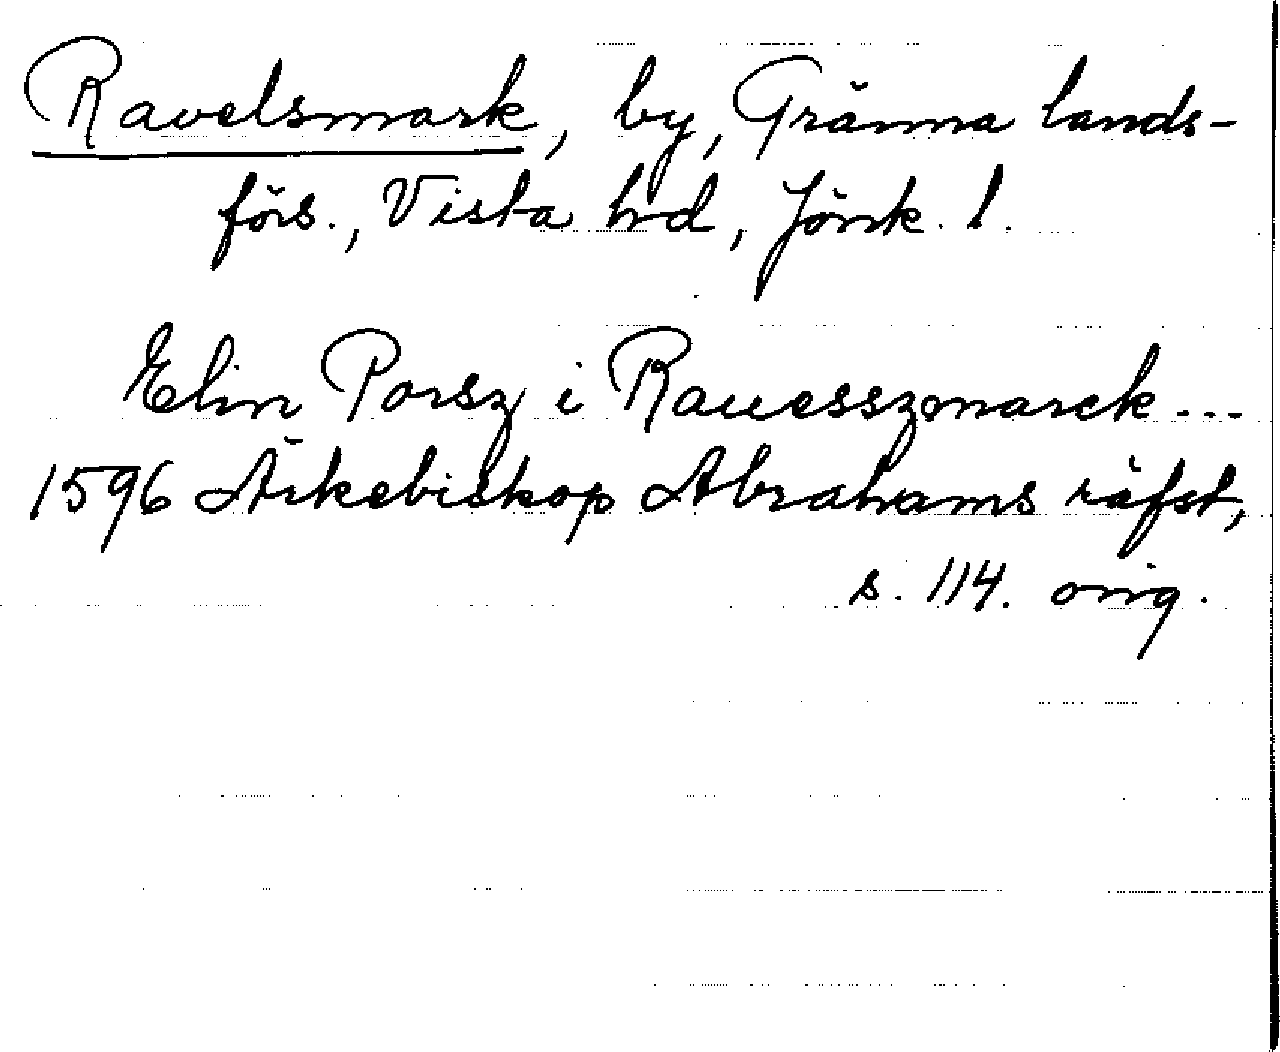 Ravelsmark, by, Gränna lands-
förs., Vista hrd, Jönk. l.
Elin Porsz i Rauesszmarck...
1596 Ärkebiskop Abrahams räfst,
s. 114. orig.